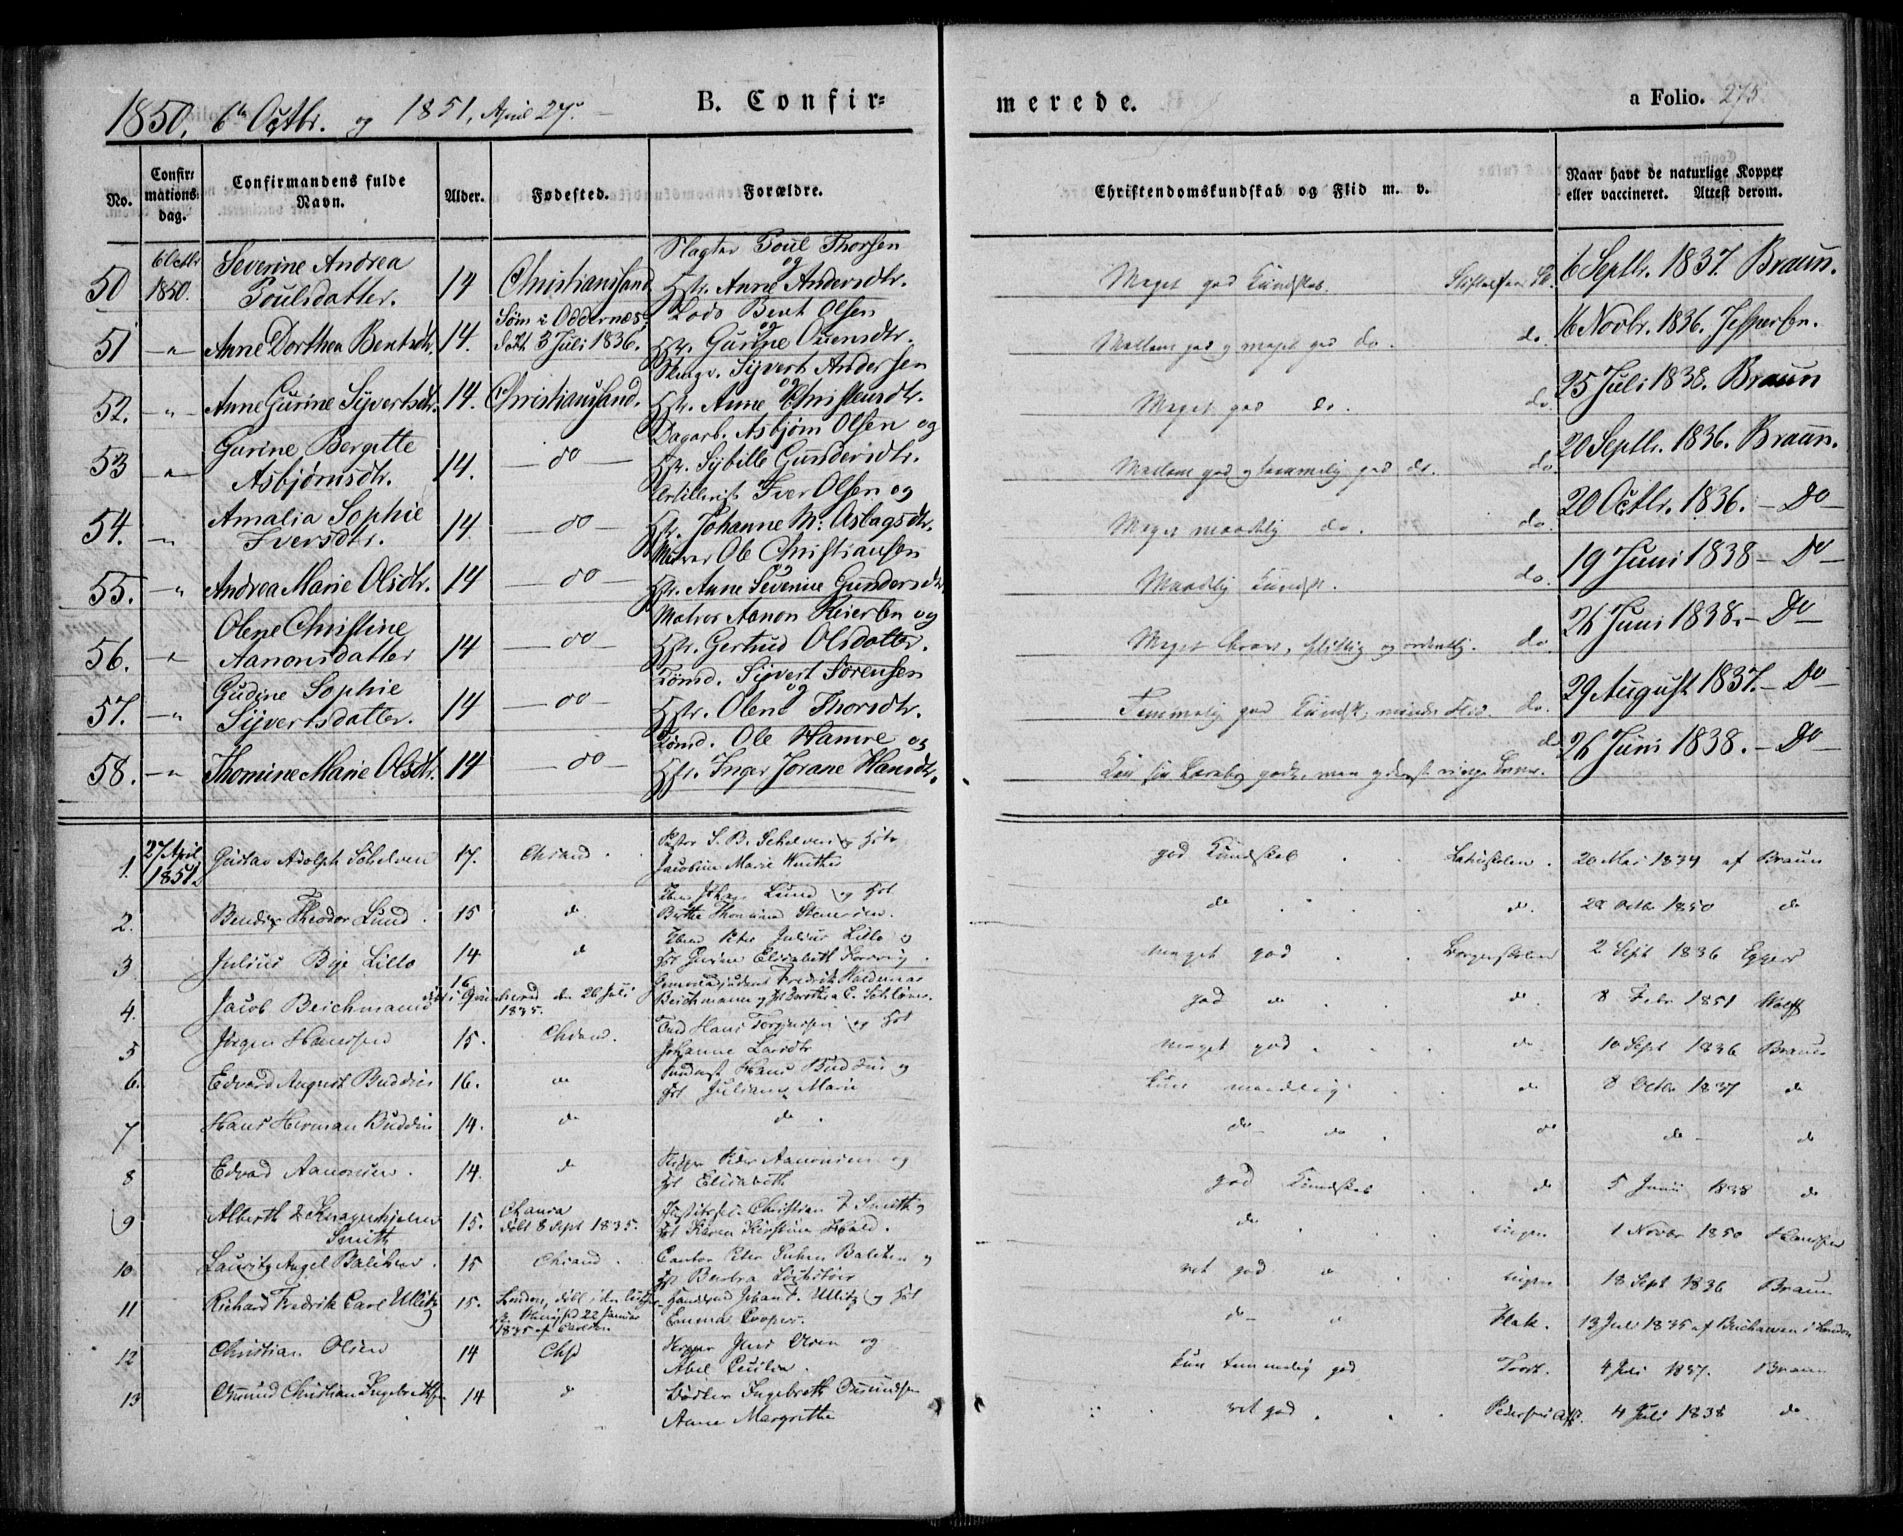 1850, 6te Octbr. og 1851, April 27.
B. Confirmerede.
a Folio. 275.
No. Confirmationsdag. Confirmandens fulde Navn. Alder. Fødested. Forældre. Christendomskundskab og Flid m. v. Naar havt de naturlige Kopper eller vaccineret. Attest derom.
50 6 Octbr 1850. Severine Andrea Poulsdatter. 14 Christianssand Slagter Poul Thorsen og Hstr. Anne Andersdtr. Meget god Kundskab. 6 Septbr. 1837. Braun.
51 " Anne Dorthea Bentsdtr. 14. Søm i Oddernes, født 3 Juli 1836. Lods Bent Olsen og Hstr. Gurine Olensdtr. Mellem god og meget god do. do. 16 Novbr. 1836. Jespersen.
52. " Anne Gurine Syvertsdtr. 14. Christianssand. Syvert Andersen og Hstr. Anne Christensdtr. Meget god do. do. 25 Juli 1838. Braun
53 " Gurine Bergitte Asbjørnsdtr. 14. do Dagarb. Asbjørn Olsen og Hstr. Sybille Gundersdtr. Mellem god og temmelig god do. do. 20 Septbr. 1836. Braun.
54. " Amalia Sophie Iversdtr. 14. do Artillerist Iver Olsen og Hstr. Johanne M. Aslagsdtr. Meget maadelig do. do. 20 Octbr. 1836. Do
55. " Andrea Marie Olsdtr. 14 do Matros Ole Christiansen og Hstr. Anne Severine Gundersdtr. Maadelig Kundsk. do. 19 Juni 1838 Do
56. " Olene Christine Aanonsdatter 14 do Matros Aanon Reiersen og Hstr. Gertrud Olsdatter. Meget brav, flittig og ordentlig. do. 26 Juni 1838. Do
57. " Gudine Sophie Syvertsdatter. 14 do Tømd. Syvert Sørensen og Hstr. Olene Thorsdtr. Temmelig god Kundsk., mindre Flid. do. 29 August 1837. Do
58. " Thomine Marie Olsdtr. 14 do Tømd. Ole Hamre og Hstr. Inger Jorane Hansdtr. do 26 Juni 1838. Do
1. 27 April 1851. Gustav Adolph Schelven 17. Chrsand. S. B. Schelven og Hstr Jacobine Marie Winther god Kundskab Latinskolen. 20 Mai 1834 af Braun
2. Bendix Theodor Lund. 15 do Lund og Hst Birthe Thomine Stensen. do do. 22 Octbr 1850 do
3 Julius Bye Lillo 14 do Peter Julius Lillo og Hst Gurine Elisabeth meget god Borgerskolen 2 Sept 1836 Eggers
4. Jacob Beichmann 16 født i den 26 Juli 1835. Fredrik Waldemar Beichmann og god do do. 8 Febr 1851 Wolff
5 Jørgen Hansen 15. Chrsand. Hans Torgersen og Hst Johanne Larsdtr meget god do. 10 Sept 1836 Braun
6. Edvard August Buddin 16. do Hans Buddin og Hst Juliane Marie kun maadelig do 8 Octbr 1837 do
7 Hans Herman Buddin 14. do do. do do do do do
8 Edvard Aanonsen. 14. do Peder Aanonsen og Hst Elisabeth god Kundskab do 5 Juni 1838 do
9 Alberth Knagenhjelm Smith 15. født 8 Sept 1835. Christian F Smith og Hst Karen Kirstine Hald. do ingen 1 Novbr 1850
10 Lauritz Angel Balchen. 15 Chrsand. Cantor Peter Balchen og Hst Barbra ret god do ingen 18 Sept 1836 Braun
11 Richard Fredrik Carl Ullitz 15. London, født i 22 Januar 1835 Johan F. Ullitz og Hst Emma Cooper. do do Plate. 13 Juli 1835 af Buchanan i London
12 Christian Olsen 14 Chsd Jens Olsen og Abel Cecilia. kun temmelig god 4 Juli 1837. Braun
13 Osmund Christian Ingebrethsen 14 do Bødker Ingebreth Osmundsen Anne Margrethe ret god 4 Juli 1838 do